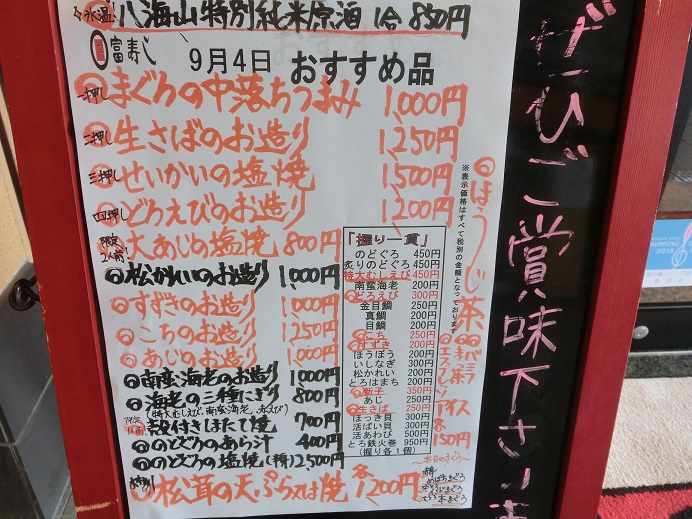 氷温! 八海山特別純米原酒 1合 850円
富寿し 9月4日 おすすめ品
一押し まぐろの中落ちつまみ 1,000円
二押し 生さばのお造り 1,250円
三押し せいかいの塩焼 1,500円
四押し どろえびのお造り 1,200円
限定2人前! 大あじの塩焼 800円
松かれいのお造り 1,000円
すずきのお造り 1,000円
こちのお造り 1,250円
あじのお造り 1,000円
南蛮海老のお造り 1,000円
海老の三種にぎり 800円
(特大むしえび、南蛮海老、赤えび)
殻付きほたて焼 700円
のどぐろのあら汁 400円
のどぐろの塩焼(半身) 2,500円
松茸の天ぷら又は焼 各1,200円
「握り一貫」
のどぐろ 450円
炙りのどぐろ 450円
特大むしえび 450円
南蛮海老 200円
どろえび 300円
金目鯛 250円
真鯛 200円
目鯛 200円
こち 250円
すずき 200円
ほうぼう 200円
いしなぎ 300円
松かれい 200円
とろはまち 200円
新子 350円
あじ 250円
生さば 250円
ほっき貝 300円
活ばい貝 300円
活あわび 500円
とろ鉄火巻 950円
(握り各1個)
~本日のまぐろ~
※表示価格はすべて税別の金額となっております
ほうじ茶
アイス
各150円
ぜひご賞味下さいま